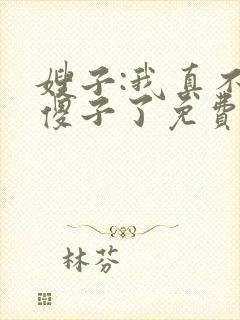 嫂子:我真不
傻子了免费
林芬